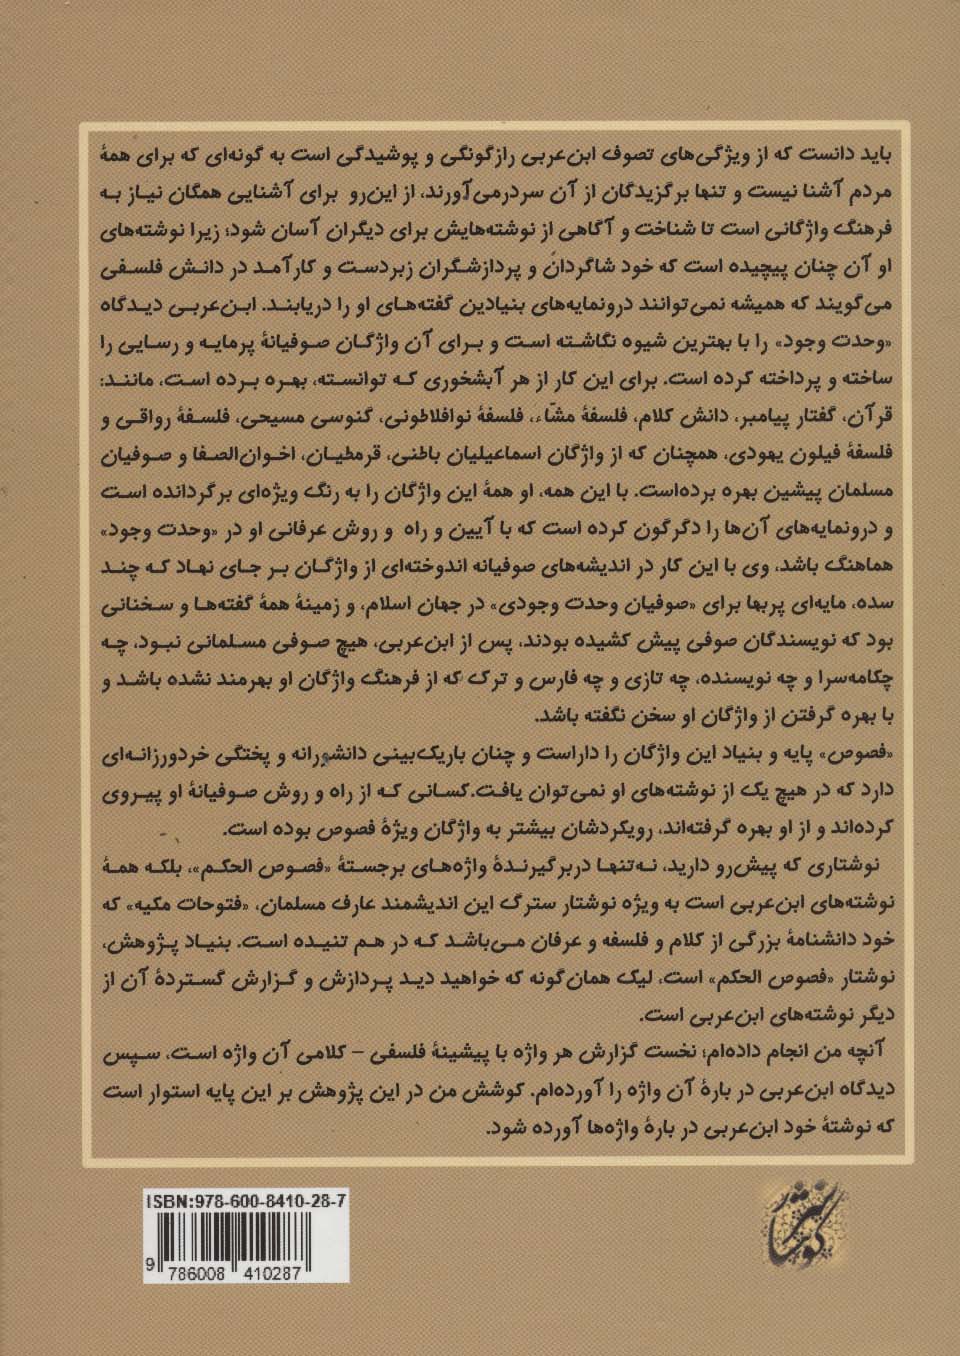 باید دانست که از ویژگی‌های تصوف ابن‌عربی رازگونگی و پوشیدگی است به گونه‌ای که برای همهٔ
مردم آشنا نیست و تنها برگزیدگان از آن سردرمی‌آورند، از این‌رو برای آشنایی همگان نیاز به
فرهنگ واژگانی است تا شناخت و آگاهی از نوشته‌هایش برای دیگران آسان شود؛ زیرا نوشته‌های
او آن چنان پیچیده است که خود شاگردان و پردازشگران زبردست و کارآمد در دانش فلسفی
می‌گویند که همیشه نمی‌توانند درونمایه‌های بنیادین گفته‌های او را دریابند. ابن‌عربی دیدگاه
«وحدت وجود» را با بهترین شیوه نگاشته است و برای آن واژگان صوفیانهٔ پرمایه و رسایی را
ساخته و پرداخته کرده است. برای این کار از هر آبشخوری که توانسته، بهره برده است، مانند:
قرآن، گفتار پیامبر، دانش کلام، فلسفهٔ مشّاء، فلسفهٔ نوافلاطونی، گنوسی مسیحی، فلسفهٔ رواقی و
فلسفهٔ فیلون یهودی، همچنان که از واژگان اسماعیلیان باطنی، قرمطیان، اخوان‌الصفا و صوفیان
مسلمان پیشین بهره برده‌است. با این همه، او همهٔ این واژگان را به رنگ ویژه‌ای برگردانده است
و درونمایه‌های آن‌ها را دگرگون کرده است که با آیین و راه و روش عرفانی او در «وحدت وجود»
هماهنگ باشد، وی با این کار در اندیشه‌های صوفیانه اندوخته‌ای از واژگان بر جای نهاد که چند
سده، مایه‌ای پربها برای «صوفیان وحدت وجودی» در جهان اسلام، و زمینهٔ همهٔ گفته‌ها و سخنانی
بود که نویسندگان صوفی پیش کشیده بودند، پس از ابن‌عربی، هیچ صوفی مسلمانی نبود، چه
چکامه‌سرا و چه نویسنده، چه تازی و چه فارس و ترک که از فرهنگ واژگان او بهرمند نشده باشد و
با بهره گرفتن از واژگان او سخن نگفته باشد.
«فصوص» پایه و بنیاد این واژگان را داراست و چنان باریک‌بینی دانشورانه و پختگی خردورزانه‌ای
دارد که در هیچ یک از نوشته‌های او نمی‌توان یافت.کسانی که از راه و روش صوفیانهٔ او پیروی
کرده‌اند و از او بهره گرفته‌اند، رویکردشان بیشتر به واژگان ویژهٔ فصوص بوده است.
نوشتاری که پیش‌رو دارید، نه‌تنها دربرگیرندهٔ واژه‌های برجستهٔ «فصوص الحکم»، بلکه همهٔ
نوشته‌های ابن‌عربی است به ویژه نوشتار سترگ این اندیشمند عارف مسلمان، «فتوحات مکیه» که
خود دانشنامهٔ بزرگی از کلام و فلسفه و عرفان می‌باشد که در هم تنیده است. بنیاد پژوهش،
نوشتار «فصوص الحکم» است، لیک همان‌گونه که خواهید دید پردازش و گزارش گستردهٔ آن از
دیگر نوشته‌های ابن‌عربی است.
آنچه من انجام داده‌ام؛ نخست گزارش هر واژه با پیشینهٔ فلسفی – کلامی آن واژه است، سپس
دیدگاه ابن‌عربی در بارهٔ آن واژه را آورده‌ام. کوشش من در این پژوهش بر این پایه استوار است
که نوشتهٔ خود ابن‌عربی در بارهٔ واژه‌ها آورده شود.
ISBN:978-600-8410-28-7
9 786008 410287
نشر